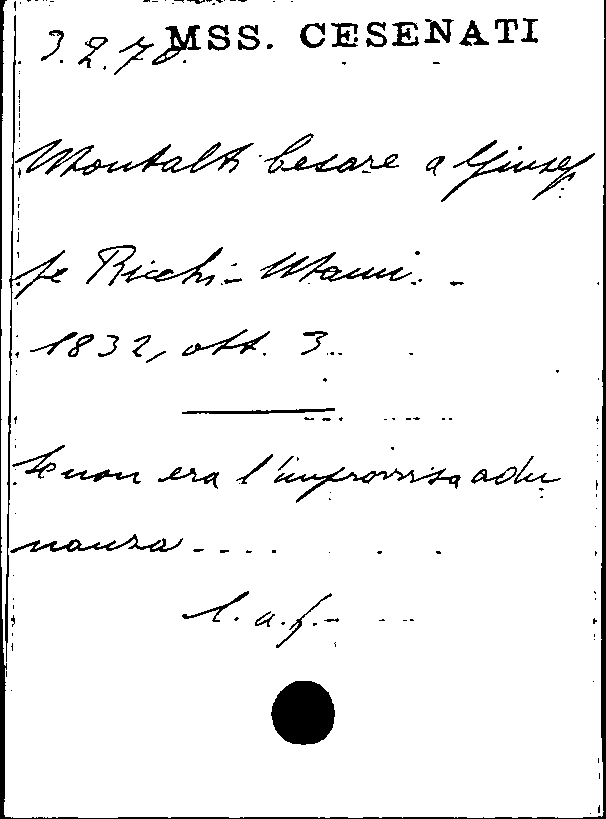 MSS. CESENATI
3.2.70.
Montalti Cesare a Giusep
pe Ricchi-Mami. -
1832, ott. 3..
Se non era l'improvvisa adu
nanza ....
l. a. f.